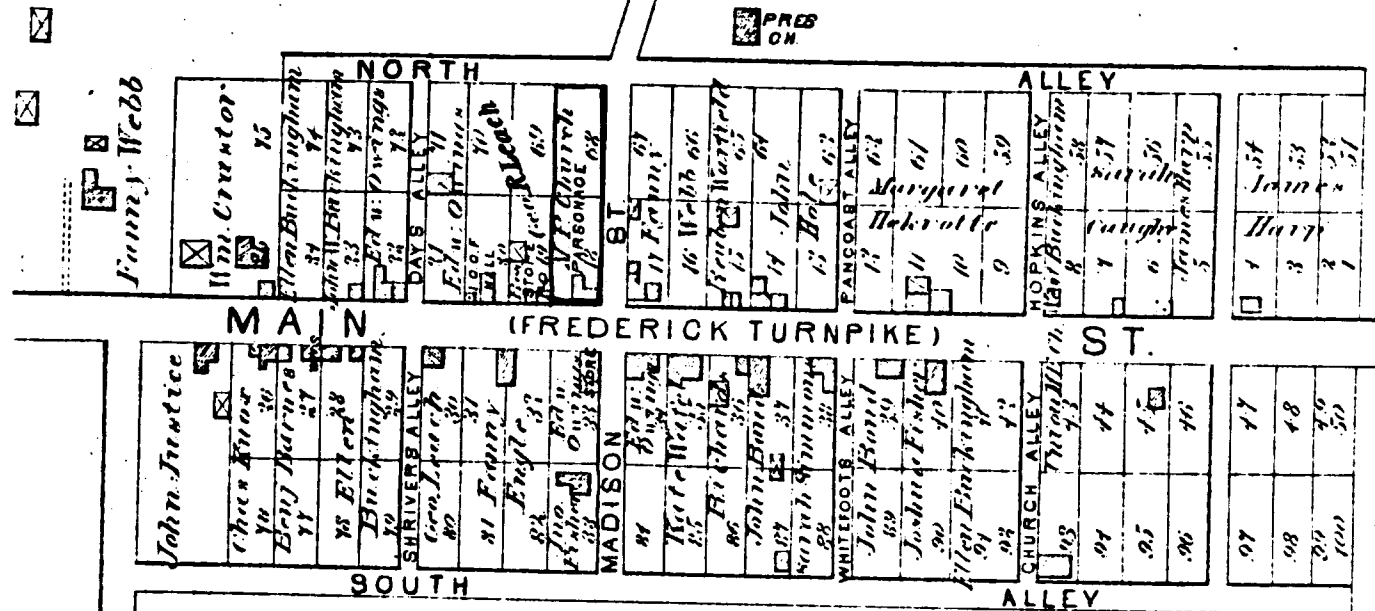 PRES
CH.
NORTH
ALLEY
Fanny Webb
Wm. Crantor
75
Ellen Buckingham
74
34
John W. Buckingham
73
33
Edw. Owings
72
32
DAYS ALLEY
71
31
Edw. Owings
70
I.O.O.F.
HALL
R Leach
30
69
STORE
M P Church
PARSONAGE
68
18
ST
67
Fanny
17
Webb 66
16
65
15
64
14 John
Hole
63
13
PANCOAST ALLEY
62
61
60
59
Margaret
Hokrotte
12
11
10
9
HOPKINS ALLEY
Buckingham
58
8
57
Sarah
7
56
6
James Harp
55
5
54
53
52
51
James
Harp
4
3
2
1
MAIN
(FREDERICK TURNPIKE)
ST.
John Justice
Chas Knox
26
76
Benj Barnes
27
77
28
78 Ellen
Buckingham
29
79
SHRIVERS ALLEY
Geo. Leach
30
80
31
81 Fanny
Engle
32
82
Edw. Owings
33 STORE
Jno. Fisher
83
MADISON
Edw. Owings
34
84
Kate
35
85
Richard
36
86
John Bond
37
87
Sarah Simmons
38
88
WHITEFOOTS ALLEY
John Bond
39
89
Joshua Fisher
40
90
Ellen Buckingham
41
91
42
92
CHURCH ALLEY
43
93
44
94
45
95
46
96
47
97
48
98
49
99
50
100
SOUTH
ALLEY